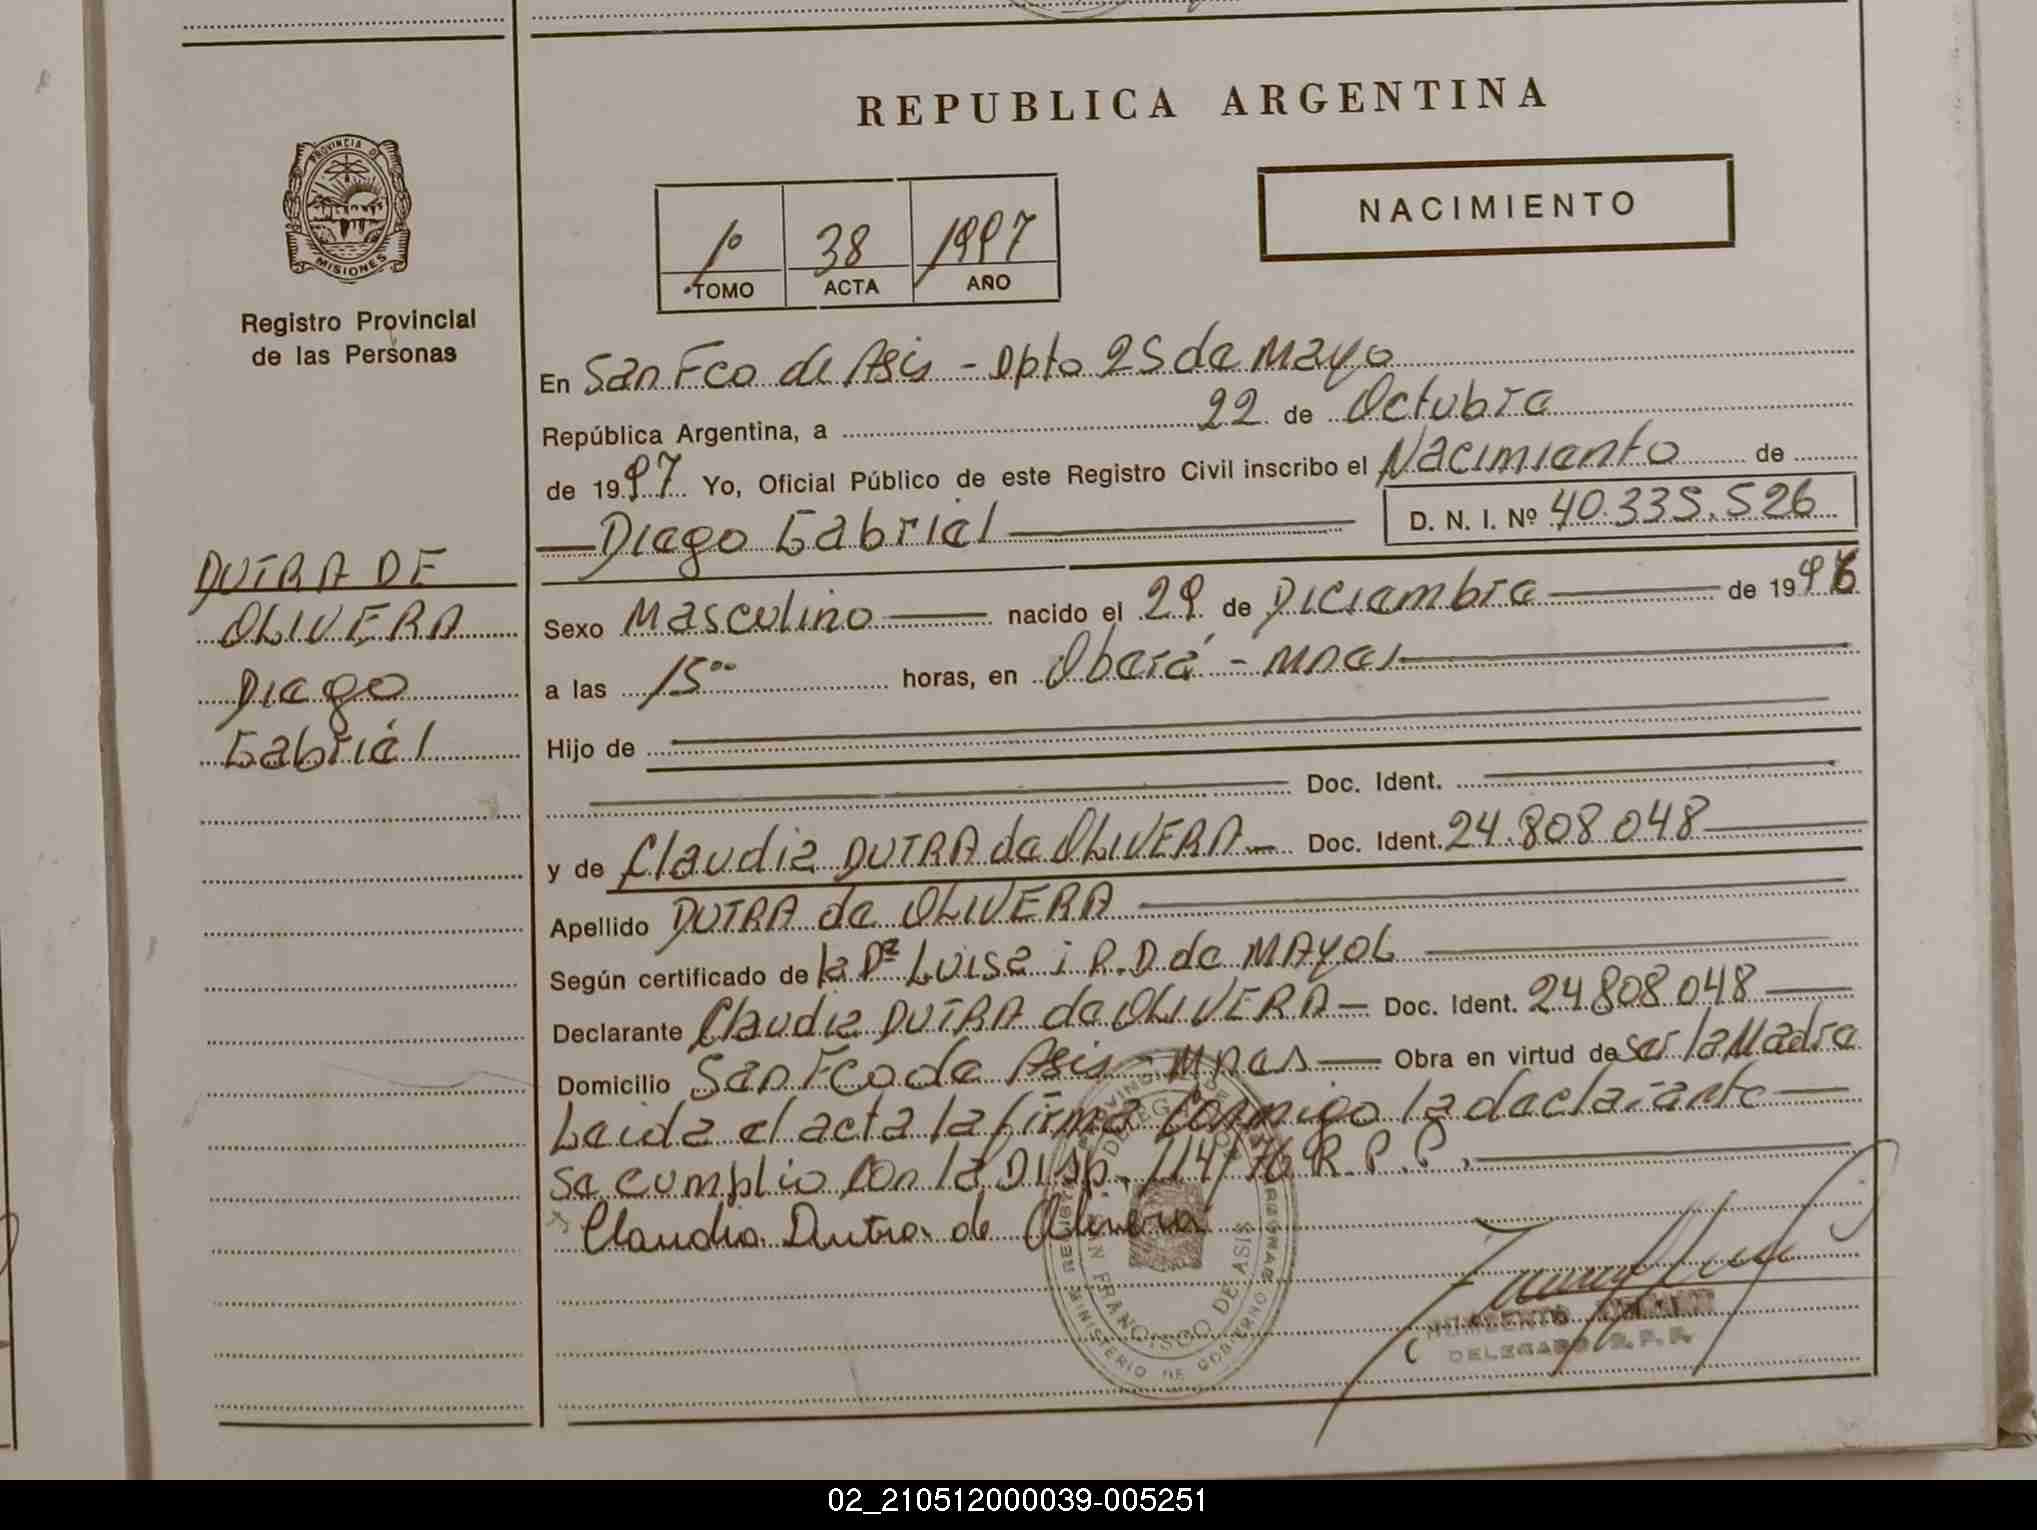 REPUBLICA ARGENTINA
PROVINCIA DE
MISIONES
Registro Provincial
de las Personas
NACIMIENTO
1º 38 1997
TOMO ACTA AÑO
En San Fco de Asis - Dpto 25 de Mayo
República Argentina, a 22 de Octubre
de 1997 Yo, Oficial Público de este Registro Civil inscribo el Nacimiento de
Diego Gabriel D. N. I. Nº 40.335.526
DUTRA DE
OLIVERA
Diego
Gabriel
Sexo Masculino nacido el 29 de Diciembre de 1996
a las 15⁰⁰ horas, en Oberá - Mnes
Hijo de
Doc. Ident.
y de Claudia DUTRA de OLIVERA Doc. Ident. 24.808.048
Apellido DUTRA de OLIVERA
Según certificado de la Dª Luisa i R.D de MAYOL
Declarante Claudia DUTRA de OLIVERA Doc. Ident. 24.808.048
Domicilio San Fco de Asis - Mnes Obra en virtud de ser la Madre
Leida el acta la firma conmigo la declarante
Se cumplio con la Disp. 114/76 R.P.P.
Claudia Dutra de Olivera
SAN FRANCISCO DE ASIS
MINISTERIO DE GOBIERNO
HUMBERTO
DELEGADO R. P. P.
02_210512000039-005251